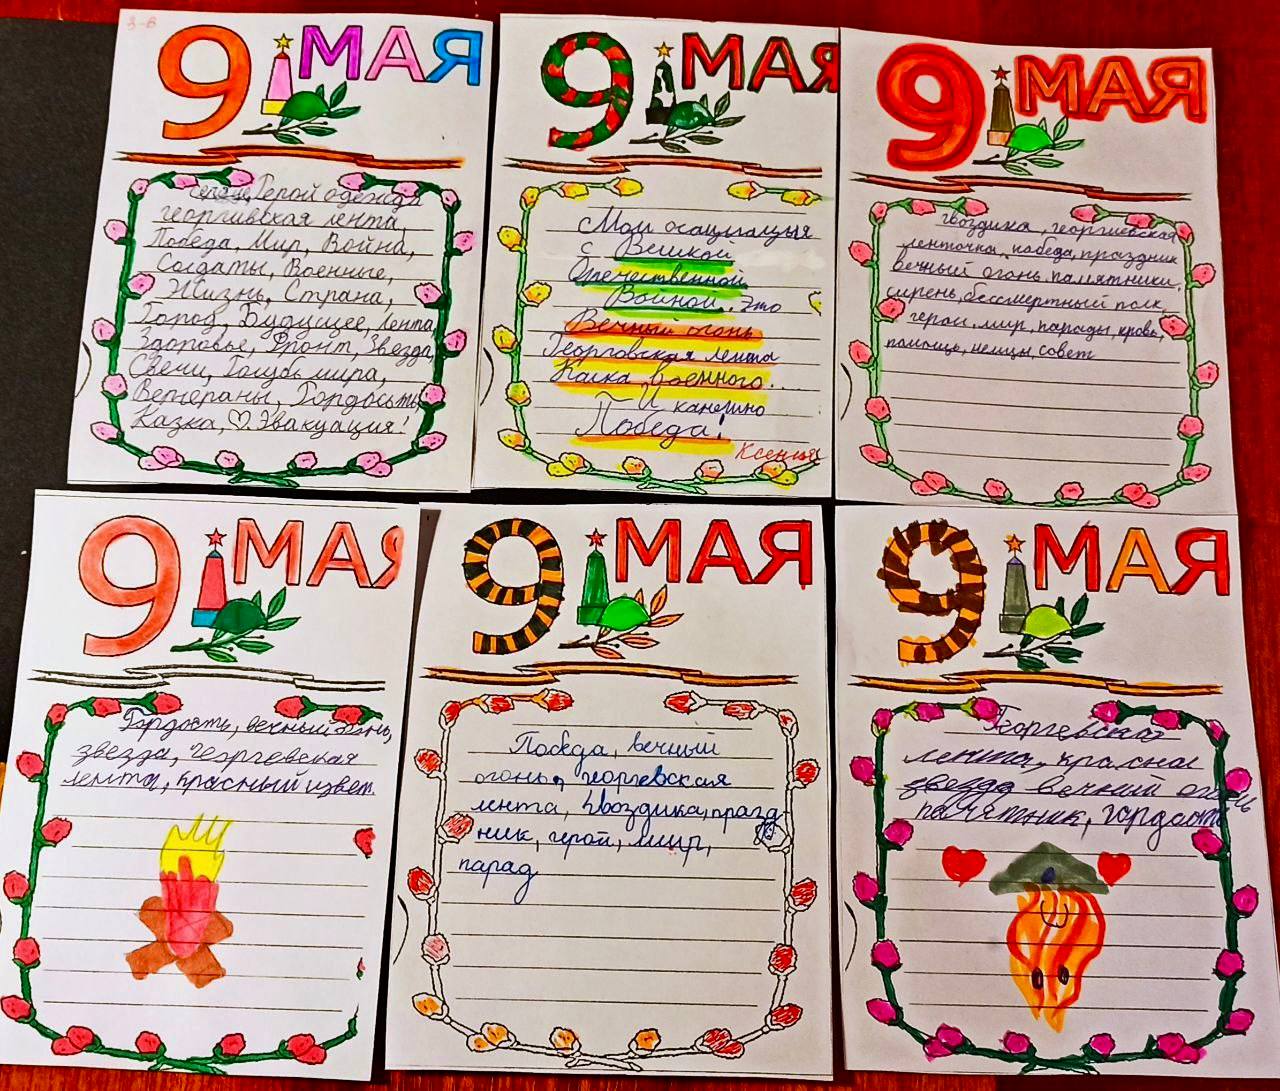 3-в
9 МАЯ
Герой одежда
георгивская лента,
Победа, Мир, Война,
Солдаты, Военные,
Жизнь, Страна,
Город, Будущее, лента
Здоровье, Фронт, Звезда,
Свечи, Голубь мира,
Ветераны, Гордость,
Каска, Эвакуация!
9 МАЯ
Мои осацыацыя
с Великой
Отечественной
Войной. Это
Вечный огонь
Георговская лента
Каска военного..
И канешно
Победа!
Ксения
9 МАЯ
гвоздика, георгиевская
ленточка, победа, праздник
вечный огонь. памятники,
сирень, бессмертный полк
герои, мир, парады, кровь,
помощь, немцы, совет
9 МАЯ
Гордость, вечный огонь,
звезда, георгевская
лента, красный цвет.
9 МАЯ
Победа, вечный
огонь, георгевская
лента, гвоздика, празд
ник, герой, мир,
парад
9 МАЯ
Георгевская
лента, красная
звезда вечний огонь
памятник, гордость